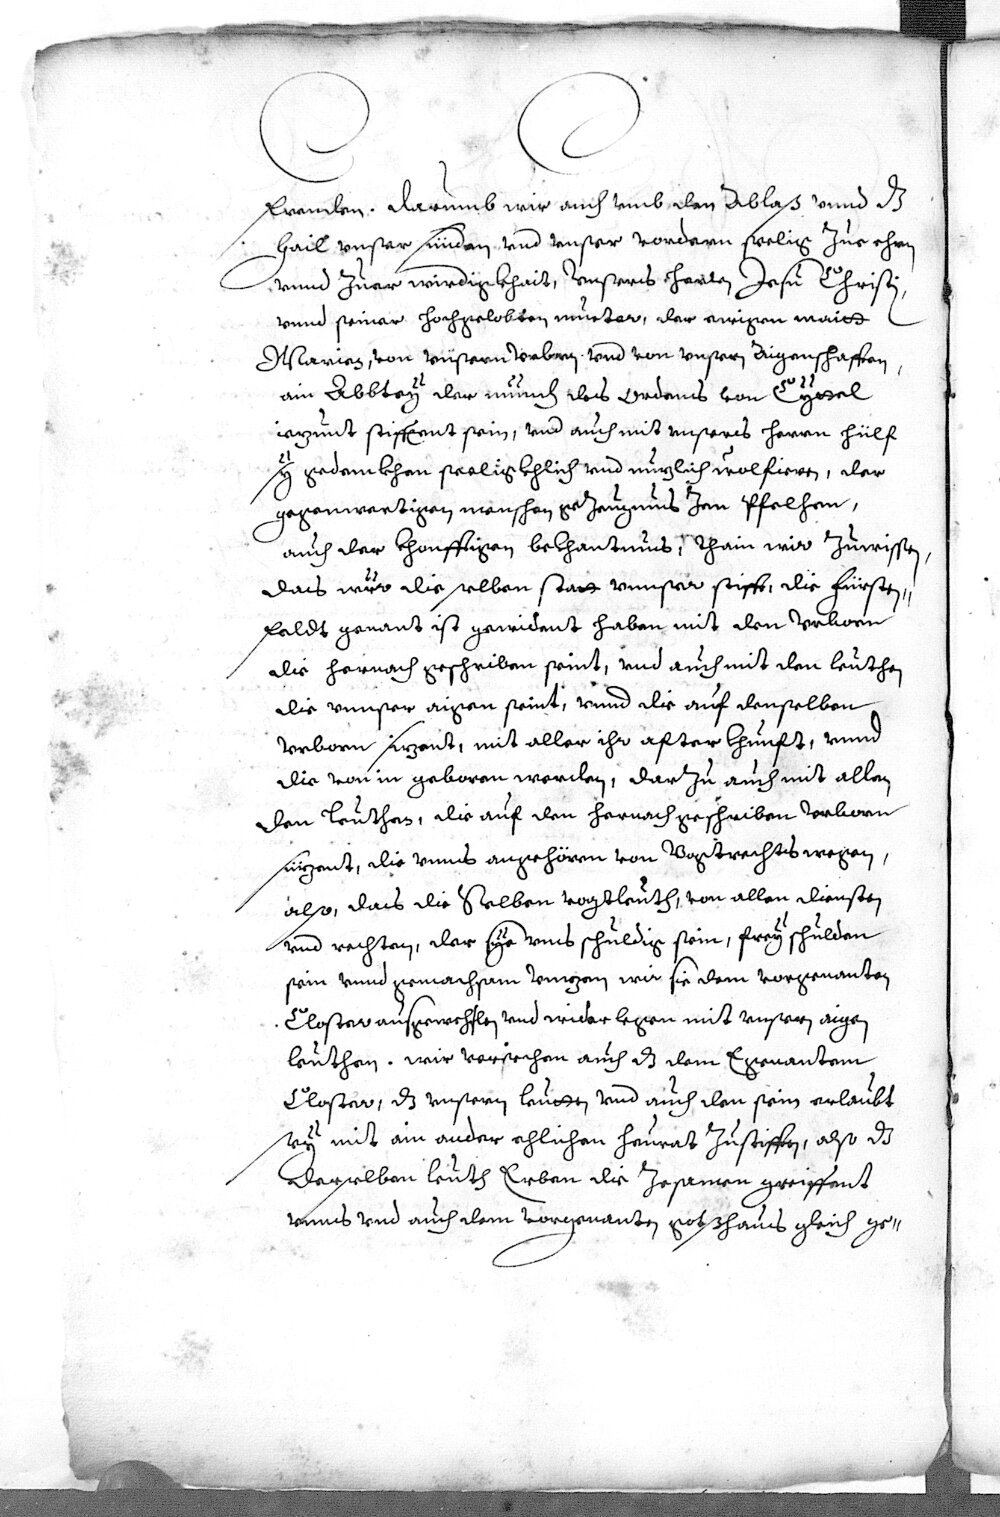 freuden. darumb wir auch umb den Ablaß unnd dz
hail unser sünden und unser vordern seelig zue ehrn
unnd zuer wirdigkhait, unsers herren Jesu Christi,
unnd seiner hochgelobten mueter, der ewigen maidt
Marien, von unsern urbern und von unsern aigenschafften,
ain Abbtey der münch des ordens von Cytzel
iezunt stifftent sein, und auch mit unsers herrn hülf
gedenkhen seeligkhlich und nuzlich volfieren, der
gegenwertigen menschen gezeugnus
auch der khonfftigen bekhantnus, thain wir zuwissen,
das wür die selben statt unnser stifft, die Fürsten=
feldt genant ist gewident haben mit den urborn
die hernach geschriben seint, und auch mit den leuthen
die unnser aigen seint, unnd die auf denselben
urborn sizent, mit aller ihr after khunft, unnd
die von in geboren werden, darzu auch mit allen
den leuthen, die auf den hernach geschriben urborn
sizent, die unns angehören von Vogtrechts wegen,
also, das die Selben vogtleuth, von allen diensten
und rechten, der sye uns schuldig sein, frey schulden
sein unnd gemachsam wir sie dem vorgenanten
Closter auswechslen und wider legen mit unsern aigen
leuthen. wir verjechen auch dz dem Egenantem
Closter, dz unsern leutten und auch den sein erlaubt
sey mit ain ander ehlichen heurat zustifften, also dz
derselben leuth Erben die zesamen greiffent
unns und auch dem vorgenanten gotzhaus gleich ge=